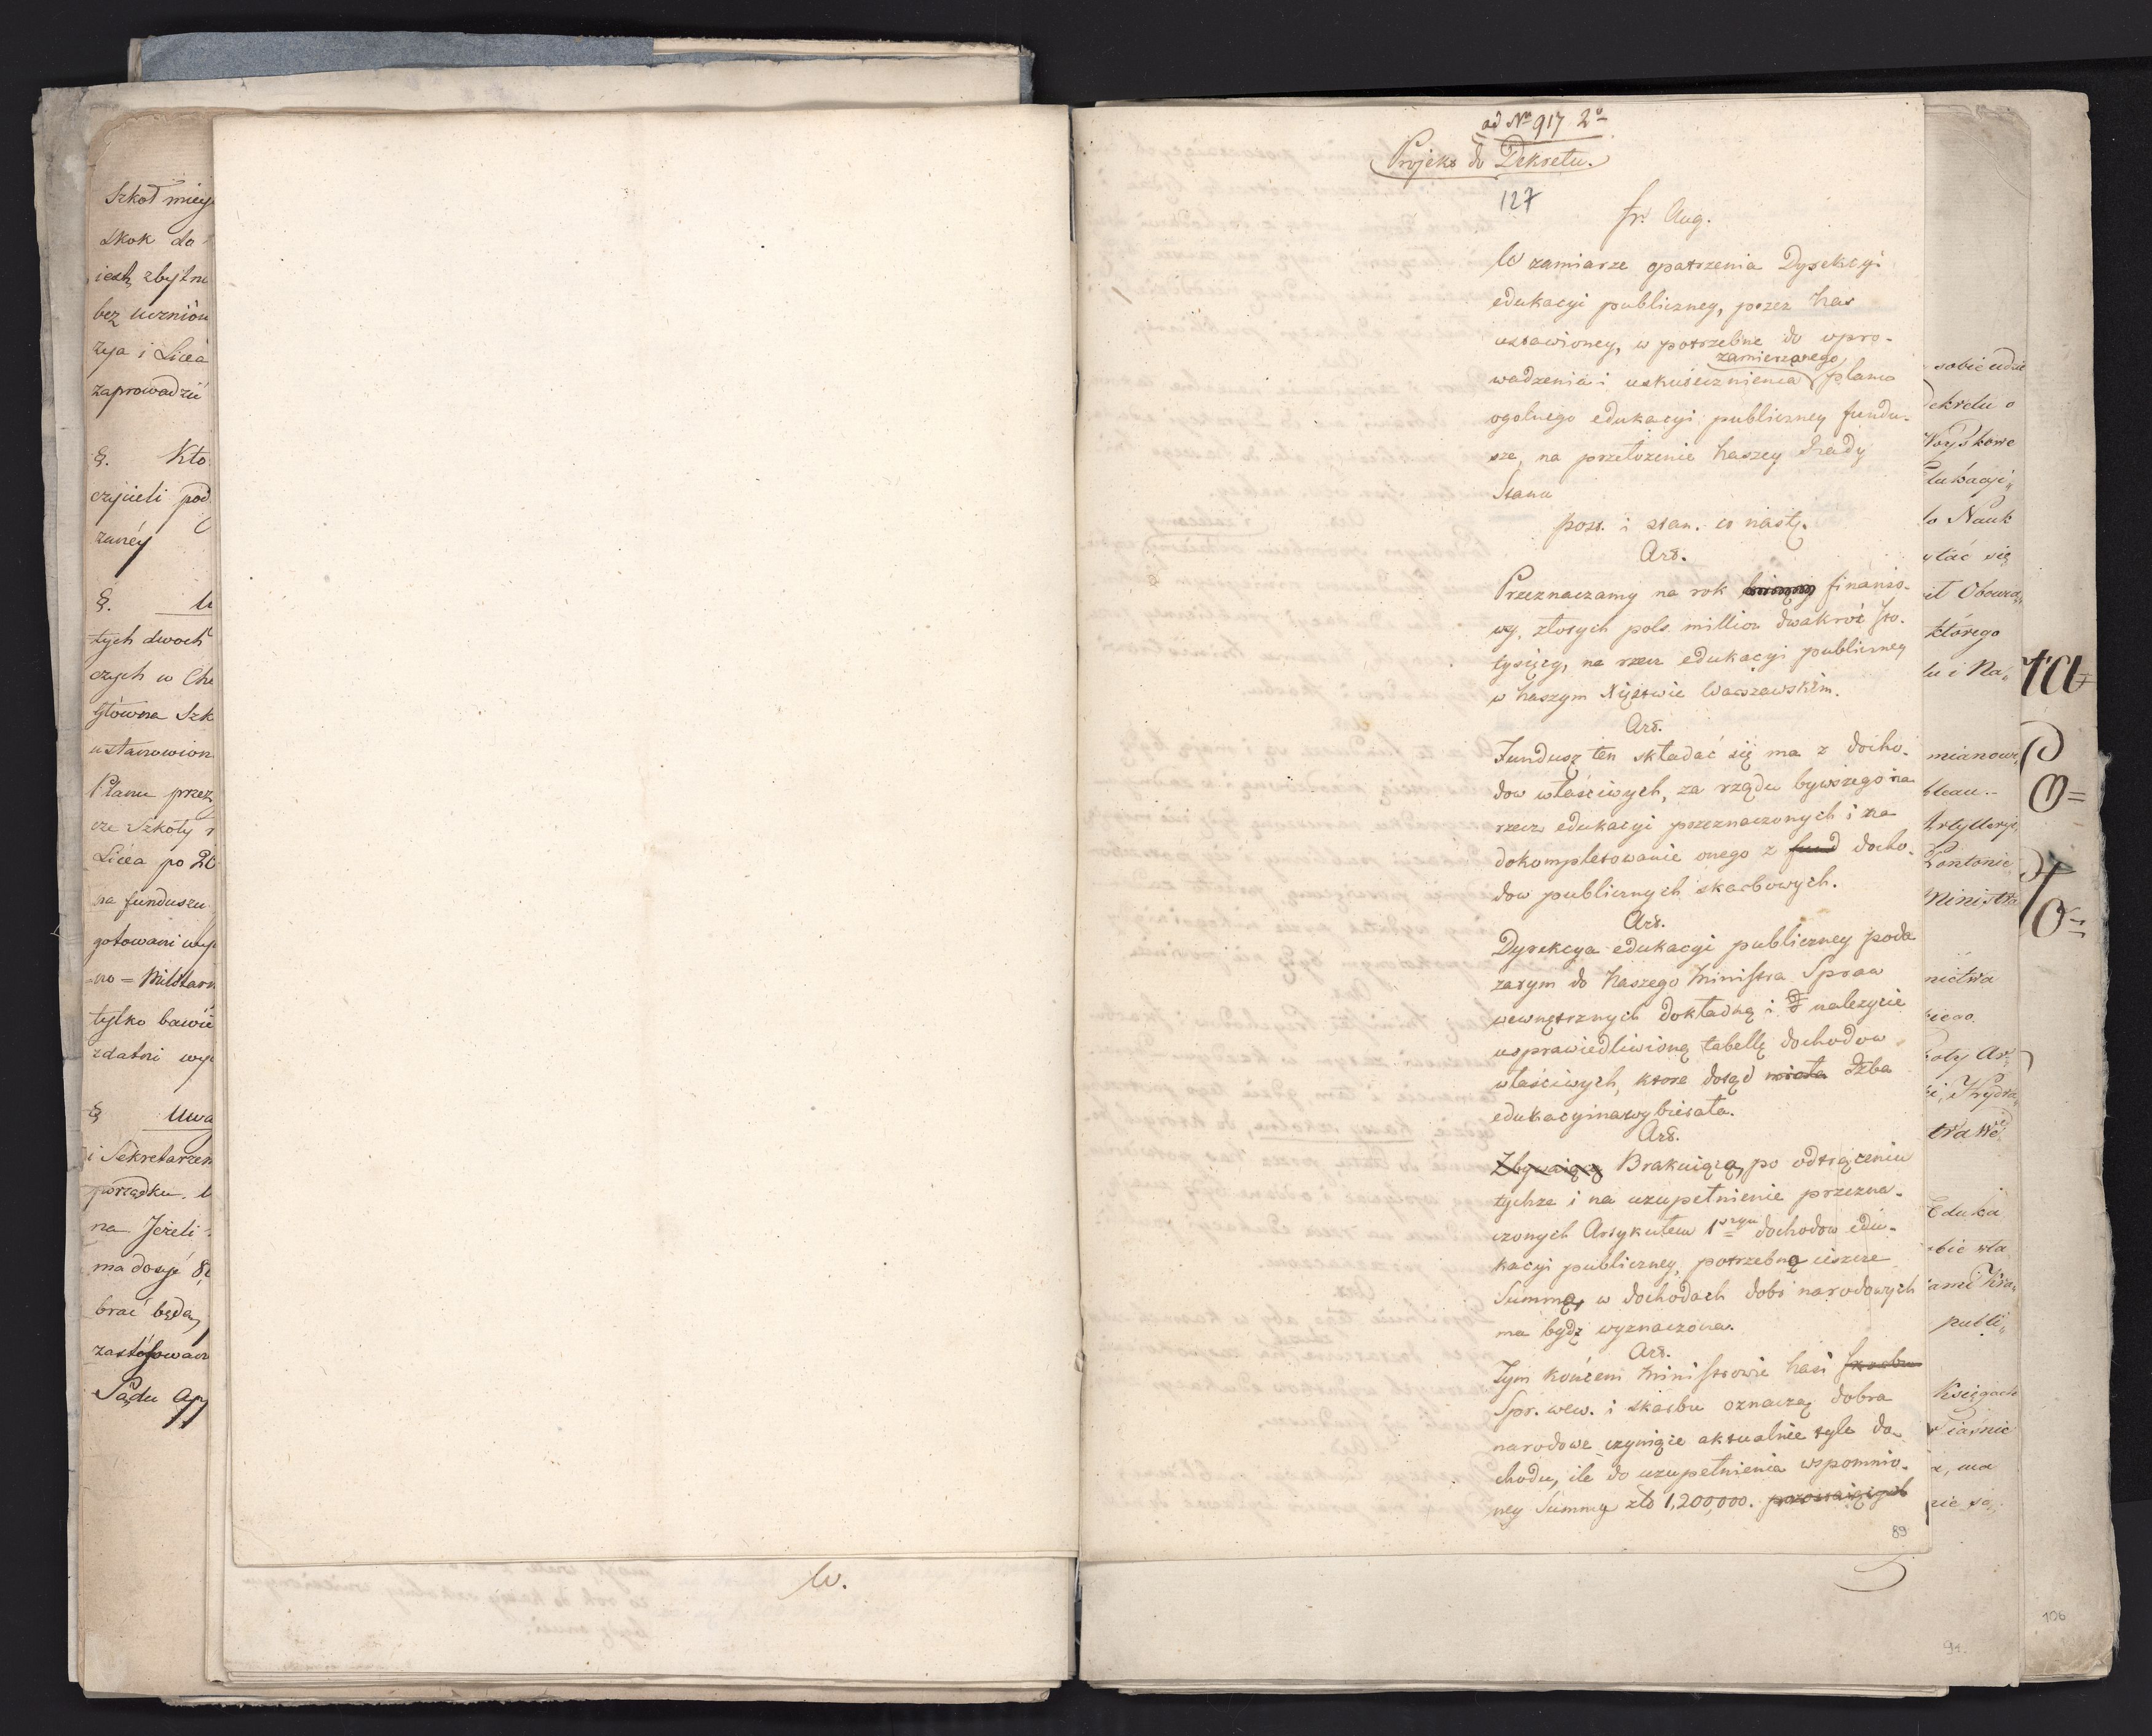 Szkoł miey
skok do
iest zbytni
bez uczniów
zya i Licea
zaprowadzić
§. Kto
czycieli pod
zaney
§. U
tych dwoch
czych w Che
główna Szk
ustanowion
Planu przez
cze Szkoły
Licea po 20
na funduszu
gotowani
no = Militarn
tylko bawić
zdatni wy
§ Uwa
i Sekretarzem
porządku.
na Jeżeli
ma dosyć
brać będą
zastósowan
Sądu Ap
W.
ad No 917 2o
Projekt do Dekretu.
127
fr. Aug.
W zamiarze opatrzenia Dyrekcyi
edukacyi publiczney, przez Nas
ustawioney, w potrzebne do wpro-
zamierzonego
wadzenia i uskutecznienia planu
ogolnego edukacyi publiczney fundu-
sze, na przełozenie Naszey Rady
Stanu
post. i stan. co nastę.
Art.
Przeznaczamy na rok bieżący finanso-
wy, złotych pols. million dwakroć sto-
tysięcy, na rzecz edukacyi publiczney
w Naszym Xięstwie Warszawskim.
Art.
Fundusz ten składać się ma z docho-
dow właściwych, za rządu bywszego na
rzecz edukacyi przeznaczonych i na
dokompletowanie onego z fund docho-
dow publicznych skarbowych.
Art.
Dyrekcya edukacyi publiczney poda
zatym do Naszego Ministra Spraw
wewnętrznych dokładną i należycie
usprawiedliwioną tabellę dochodow
właściwych, ktore dotąd miała Izba
edukacyina wybierała.
Art.
Zbywaiącą Brakuiącą, po odtrąceniu
tychże i na uzupełnienie przezna-
czonych Artykułem 1szym dochodow edu-
kacyi publiczney, potrzebną ieszcze
Summą, w dochodach dobr narodowych
ma bydź wyznaczona.
Art.
Tym końcem Ministrowie Nasi Skarbu
Spr. wew. i skarbu oznaczą dobra
narodowe czyniące aktualnie tyle do-
chodu, ile do uzupełnienia wspomnio-
ney Summy złp 1,200,000. pozostaiących
89
sobie udzie
Dekretu o
Woyskowe
Edukacyi
do Nauk
ytać się
którego
lu i Na
mianowi
bleau.
Artylleryi
Kantonie
Ministra
nictwa
koły Ar
trawie
Eduka
publi
Księgach
ma
nie są
91.
106